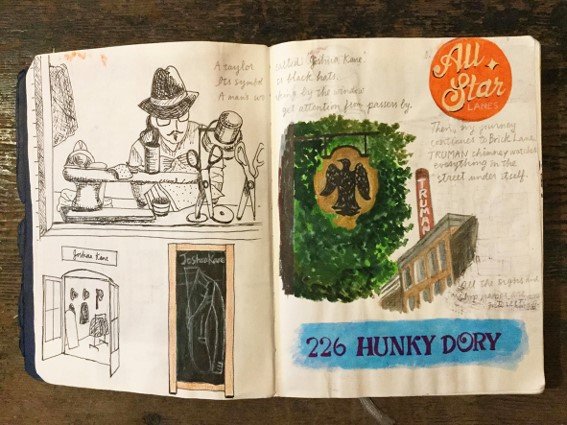 A taylor called Joshua Kane
Its symbol is black hats.
A man's working by the window
get attention from passers by.
casual
Joshua Kane
Joshua Kane
All Star
LANES
Then, my journey
continues to Brick Lane.
TRUMAN chimney watches
everything in the
street under itself.
TRUMAN
All the signs and
226 HUNKY DORY